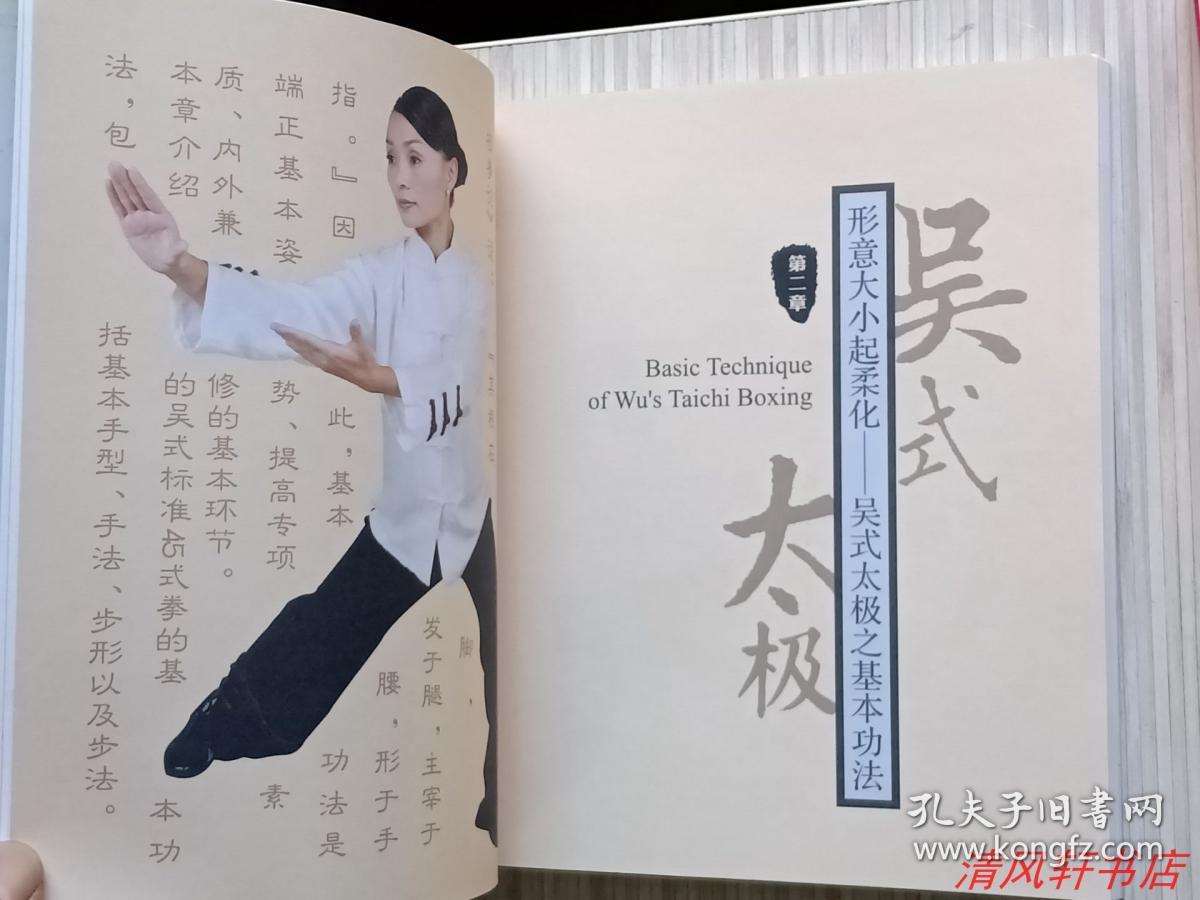 脚，
发于腿，主宰于
腰，形于手
指。』因此，基本功法是
端正基本姿势、提高专项素
质、内外兼修的基本环节。
本章介绍的吴式标准式拳的基本功
法，包括基本手型、手法、步形以及步法。
吴式
太极
形意大小起柔化——吴式太极之基本功法
第二章
Basic Technique
of Wu's Taichi Boxing
孔夫子旧书网
www.kongfz.com
清风轩书店